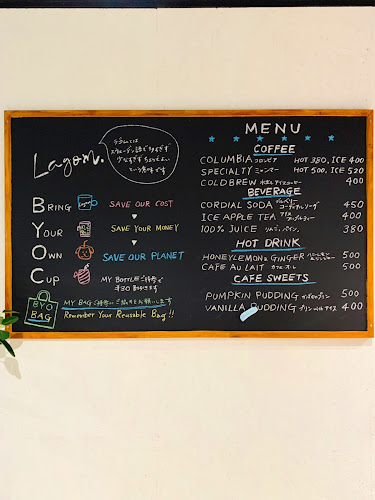 Lagom.
ラーゴムとは
スウェーデン語で多すぎず
少なすぎず ちょうどよい
という意味です
BRING SAVE OUR COST
YOUR SAVE YOUR MONEY
OWN SAVE OUR PLANET
CUP MY BOTTLEご持参で
¥30割引きます
BYO
BAG
MY BAGご持参にご協力をお願いします
Remember Your Reusable Bag!!
MENU
COFFEE
COLUMBIA コロンビア HOT 380, ICE 400
SPECIALTY ミャンマー HOT 500, ICE 520
COLD BREW 水出しアイスコーヒー 400
BEVERAGE
CORDIAL SODA ブルーベリーコーディアルソーダ 450
ICE APPLE TEA アイスアップルティー 400
100% JUICE りんご、パイン、 380
HOT DRINK
HONEYLEMON & GINGER 500
CAFE AU LAIT カフェ・オ・レ 500
CAFE SWEETS
PUMPKIN PUDDING かぼちゃプリン 500
VANILLA PUDDING プリン withアイス 400